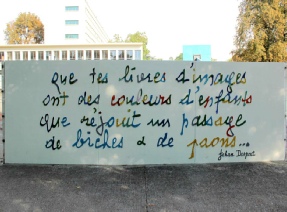 que tes livres d'images
ont des couleurs d'enfants
que réjouit un passage
de biches & de paons...
Jehan Despert